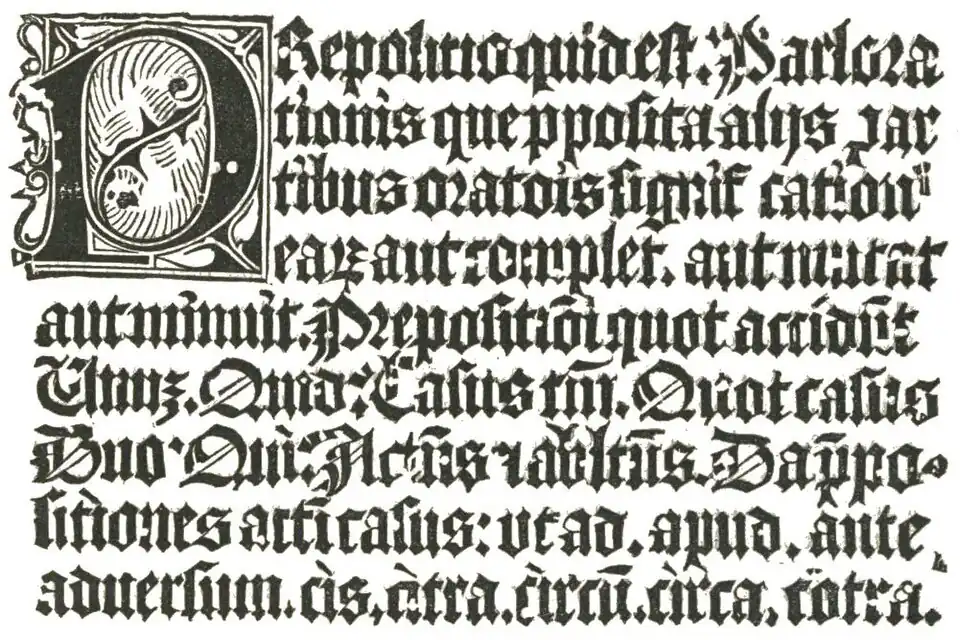 PRepositio quid est? Pars ora
tionis que pposita alijs par
tibus orationis significationē
earū aut complet. aut mutat
aut minuit. Prepositiōi quot accidūt
Unū. Quid? Casus tm̄. Quot casus
Duo. Qui? Actūs ⁊ ablatūs. Da p̄po
sitiones acti casus: ut ad. apud. ante
aduersum. cis, citra. circū. circa, cōtra.